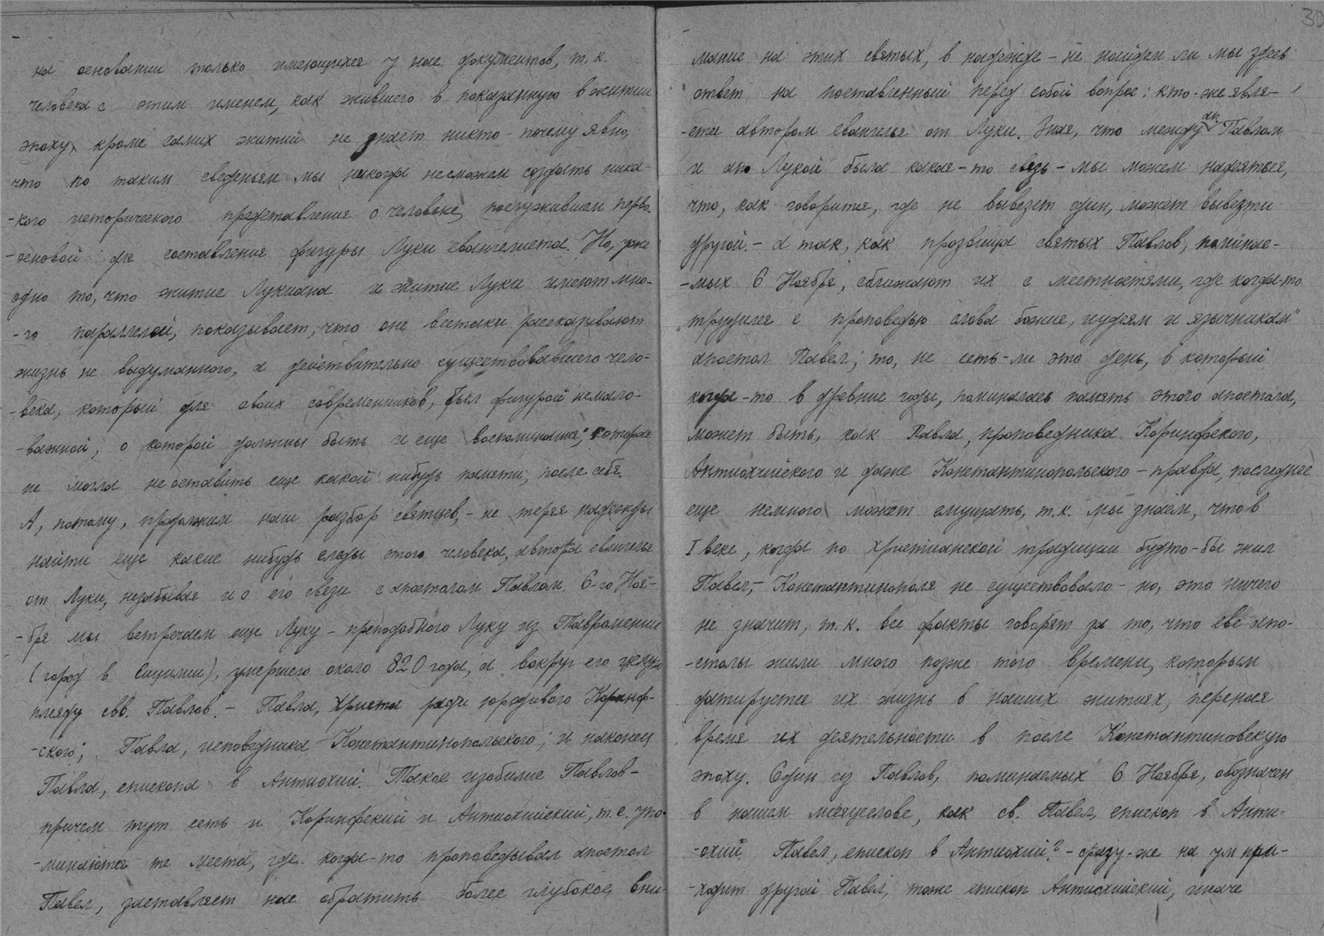 на основании только имеющихся у нас документов, т.к.
человека с этим именем, как жившего в показанную в житии
эпоху, кроме самих житий не знает никто - почему явно,
что по таким сведеньям мы никогда не сможем создать ника-
-кого исторического представления о человеке, послужившем перво-
-основой для составления фигуры Луки евангелиста. Но, уже
одно то, что житие Лукиана и житие Луки имеют мно-
-го параллелей, показывает, что они всетаки рассказывают
жизнь не выдуманного, а действительно существовавшего чело-
-века, который для своих современников, был фигурой немало-
-важной, о которой должны быть и еще воспоминания, которая
не могла не оставить еще какой нибудь памяти, после себя.
А, потому, продолжим наш разбор святцев, - не теряя надежды
найти еще какие нибудь следы этого человека, автора евангелья
от Луки, незабывая и о его связи с апостолом Павлом. 6-го Ноя-
-бря мы встречаем еще Луку - преподобного Луку из Тавромении
(город в Сицилии), умершего около 820 года, а вокруг его целую
плеяду свв. Павлов. - Павла, Христа ради юродивого Коринф-
-ского; Павла, исповедника Константинопольского; и наконец
Павла, епископа в Антиохии. Такое изобилие Павлов -
причем тут есть и Коринфский и Антиохийский, т.е. упо-
-минаются те места, где когда-то проповедывал апостол
Павел, заставляет нас обратить более глубокое вни-
30
мание на этих святых, в надежде - не найдем ли мы здесь
ответ на поставленный перед собой вопрос: кто-же явля-
-ется автором евангелья от Луки. Зная, что между ап. Павлом
и ап. Лукой была какая-то связь - мы можем надеяться,
что, как говорится, где не вывезет один, может вывезти
другой. - а так, как прозвища святых Павлов, поминае-
-мых 6 Ноября, сближают их с местностями, где когда-то
"трудился с проповедью слова божия, иудеям и язычникам"
апостол Павел; то, не есть-ли это день, в который
когда-то в древние годы, поминалась память этого апостола,
может быть, как Павла, проповедника Коринфского,
Антиохийского и даже Константинопольского - правда, последнее
еще немного может смущать, т.к. мы знаем, что в
I веке, когда по христианской традиции будто-бы жил
Павел, - Константинополя не существовало - но, это ничего
не значит, т.к. все факты говорят за то, что све апо-
-столы жили много позже того времени, которым
датируется их жизнь в наших житиях, перенося
время их деятельности в после Константиновскую
эпоху. Один из Павлов, поминаемых 6 Ноября, обозначен
в нашем месяцеслове, как св. Павел, епископ в Анти-
-охии. Павел, епископ в Антиохии? - сразу-же на ум при-
-ходит другой Павел, тоже епископ Антиохийский, иначе